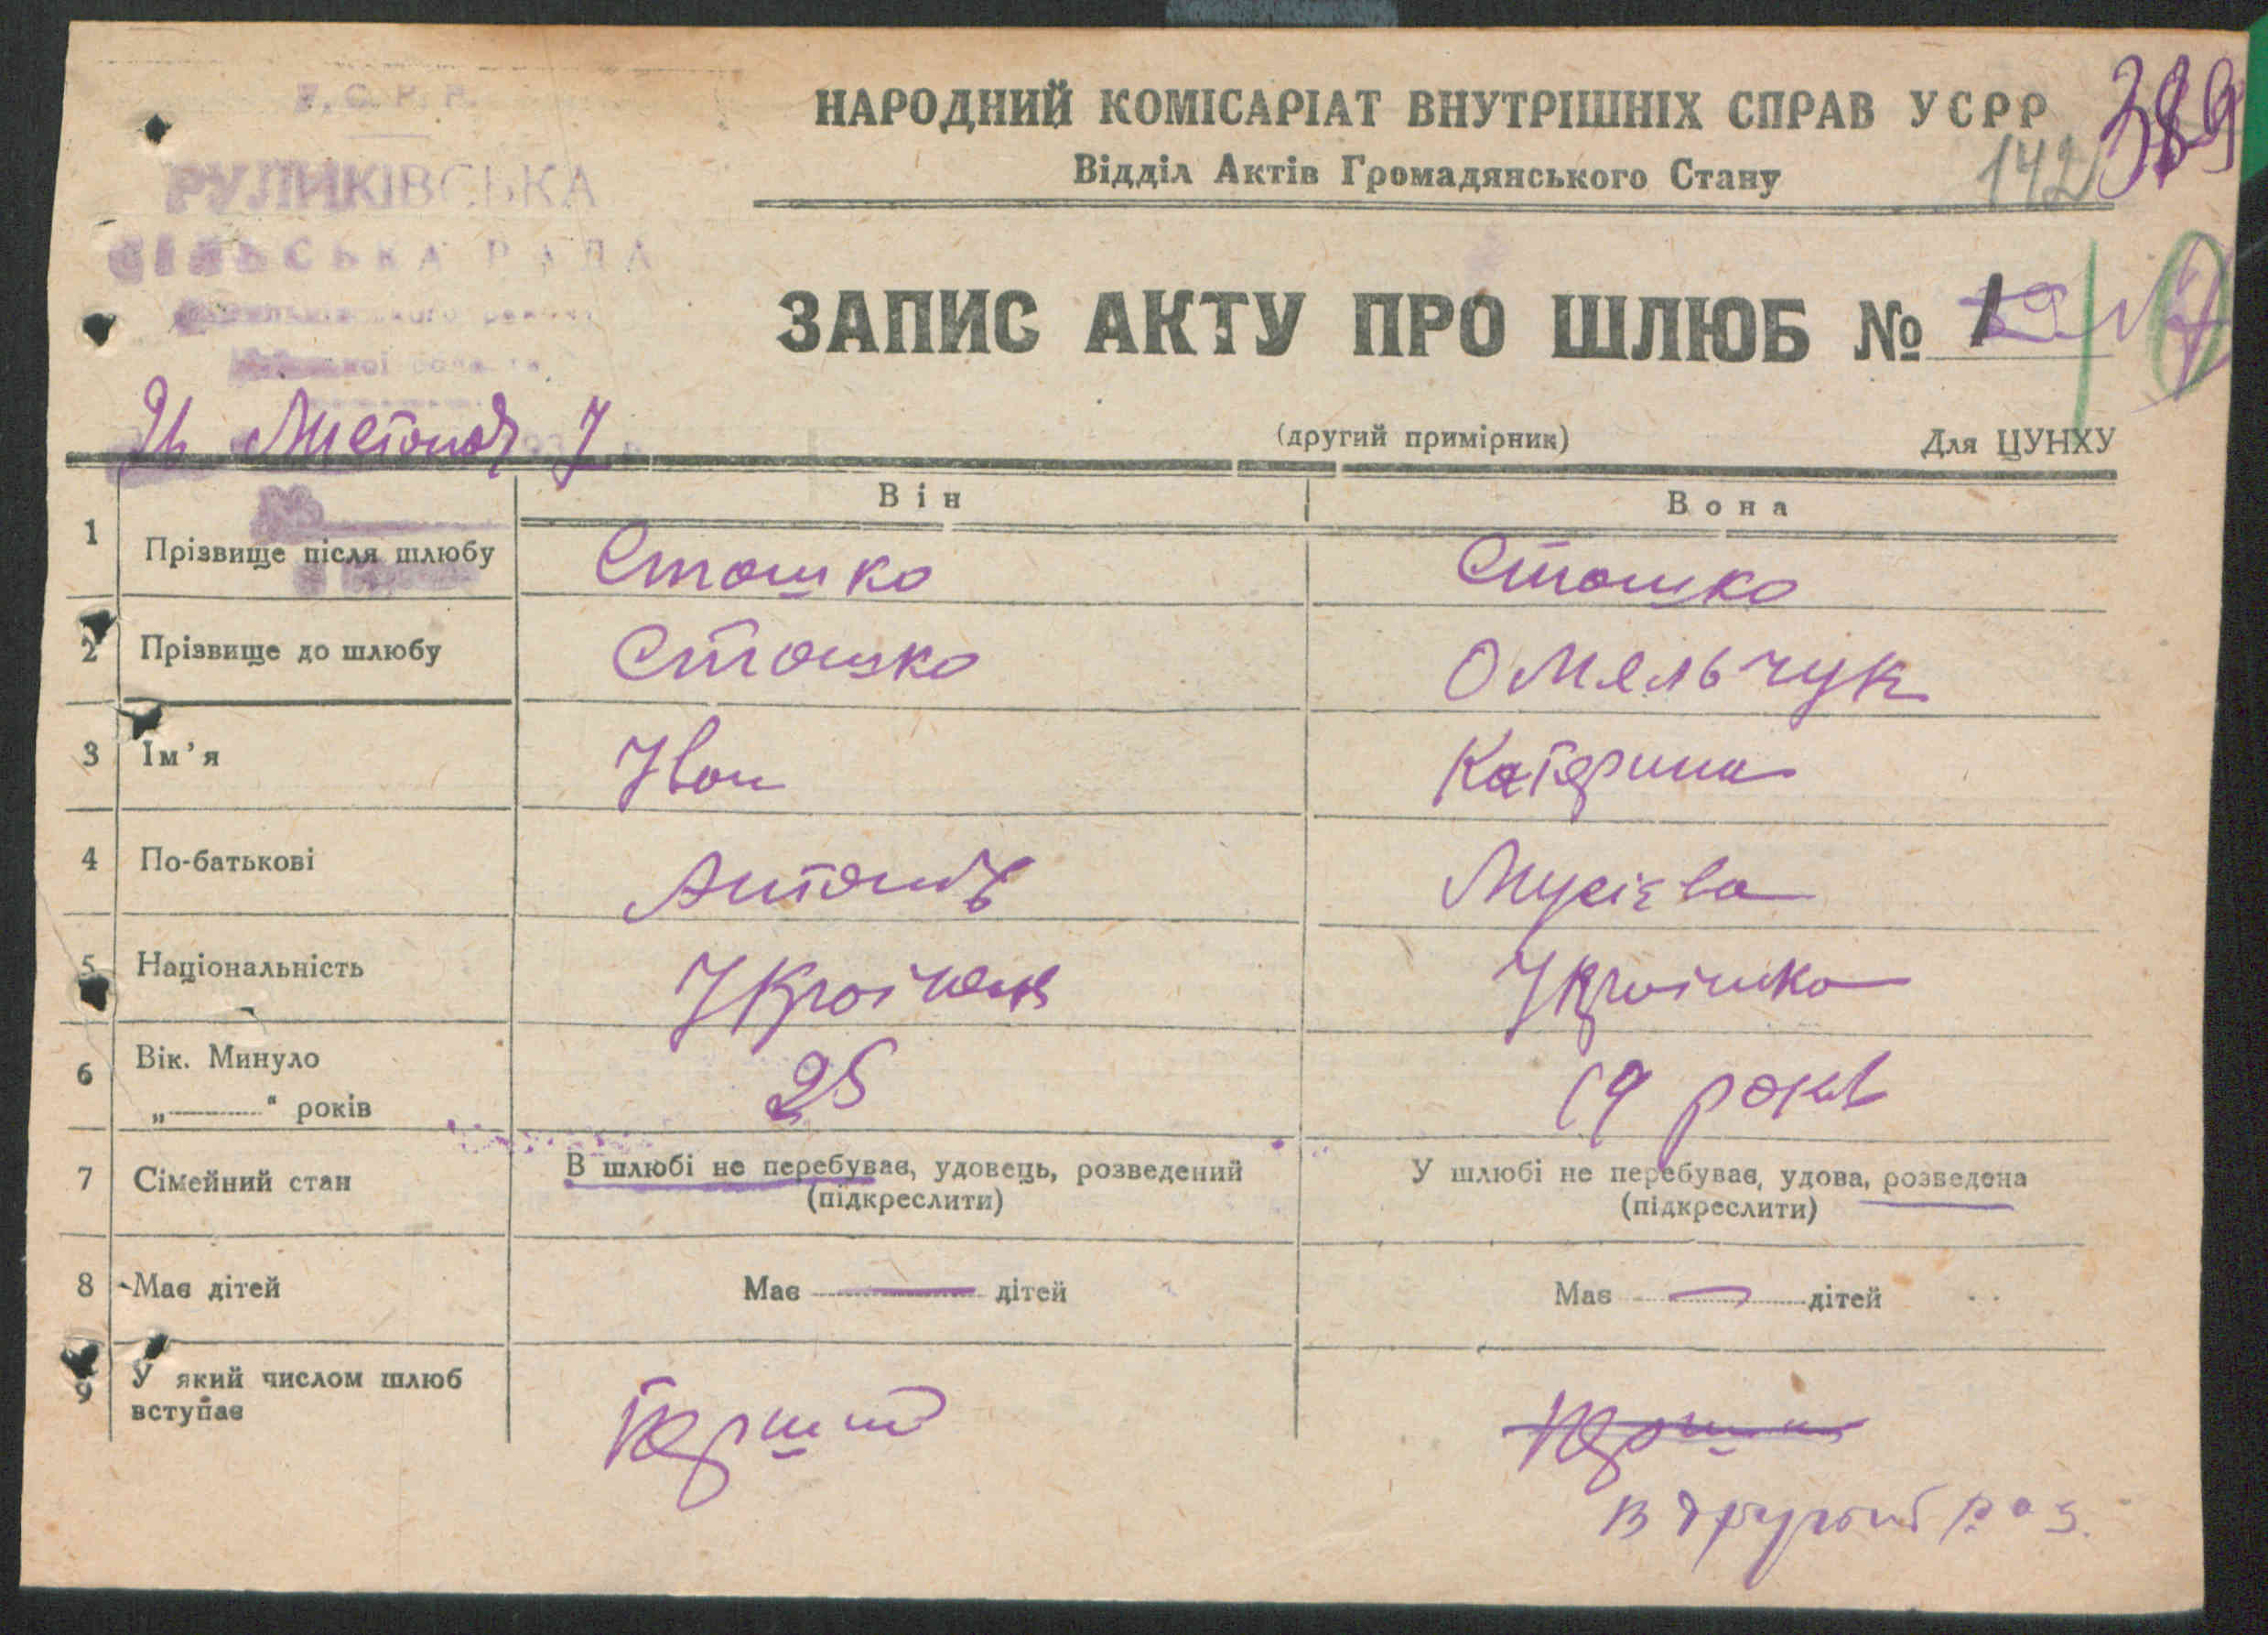 У. С. Р. Р.
РУЛИКІВСЬКА
СІЛЬСЬКА РАДА
НАРОДНИЙ КОМІСАРІАТ ВНУТРІШНІХ СПРАВ УСРР
389
Відділ Актів Громадянського Стану
142
ЗАПИС АКТУ ПРО ШЛЮБ № 1
(другий примірник)
Для ЦУНХУ
Він
Вона
1 Прізвище після шлюбу Сташко Сташко
2 Прізвище до шлюбу Сташко Омельчук
3 Ім'я Іван Катерина
4 По-батькові Антонів Мусієва
5 Національність Українець Українка
6 Вік. Минуло
„ “ років 25 19 років
7 Сімейний стан В шлюбі не перебував, удовець, розведений У шлюбі не перебував, удова, розведена
(підкреслити) (підкреслити)
8 Має дітей Має — дітей Має — дітей
9 У який числом шлюб
вступає Перший Перший
в другий раз.